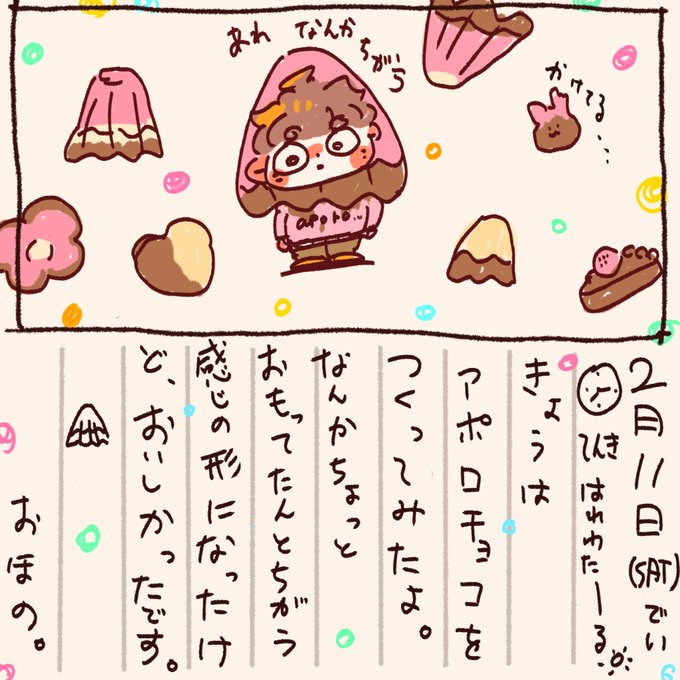 あれ なんか
ちがう
かけてる...
apoto...
2月11日(SAT)でい
てんき はれわたーる
きょうは
アポロチョコを
つくってみたよ。
なんかちょっと
おもってたんとちがう
感じの形になったけ
ど、おいしかったです。
おほの。